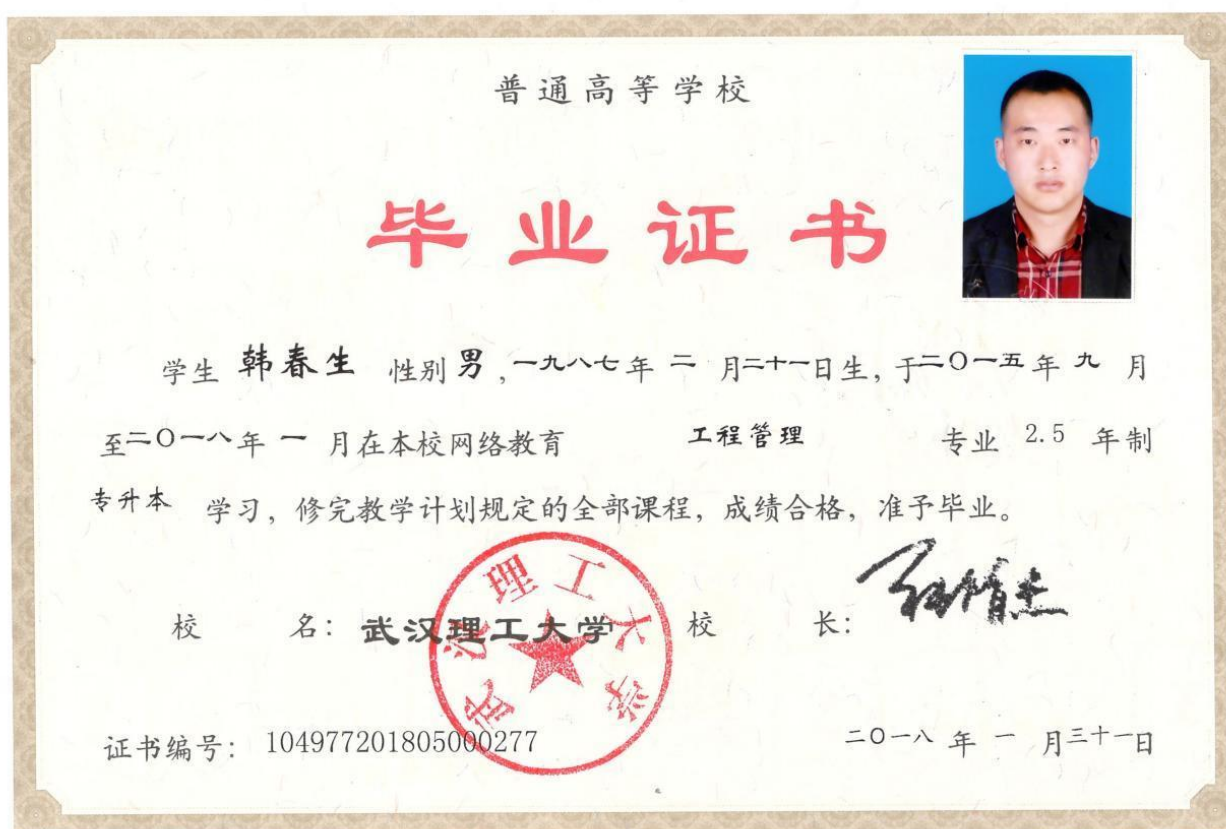 普通高等学校
毕业证书
学生 韩春生 性别 男 ,一九八七年 二 月二十一日生, 于二〇一五年 九 月
至二〇一八年 一 月在本校网络教育 工程管理 专业 2.5 年制
专升本 学习, 修完教学计划规定的全部课程, 成绩合格, 准予毕业。
武汉理工大学
校 名: 武汉理工大学 校 长:
证书编号: 104977201805000277 二〇一八 年 一 月三十一日